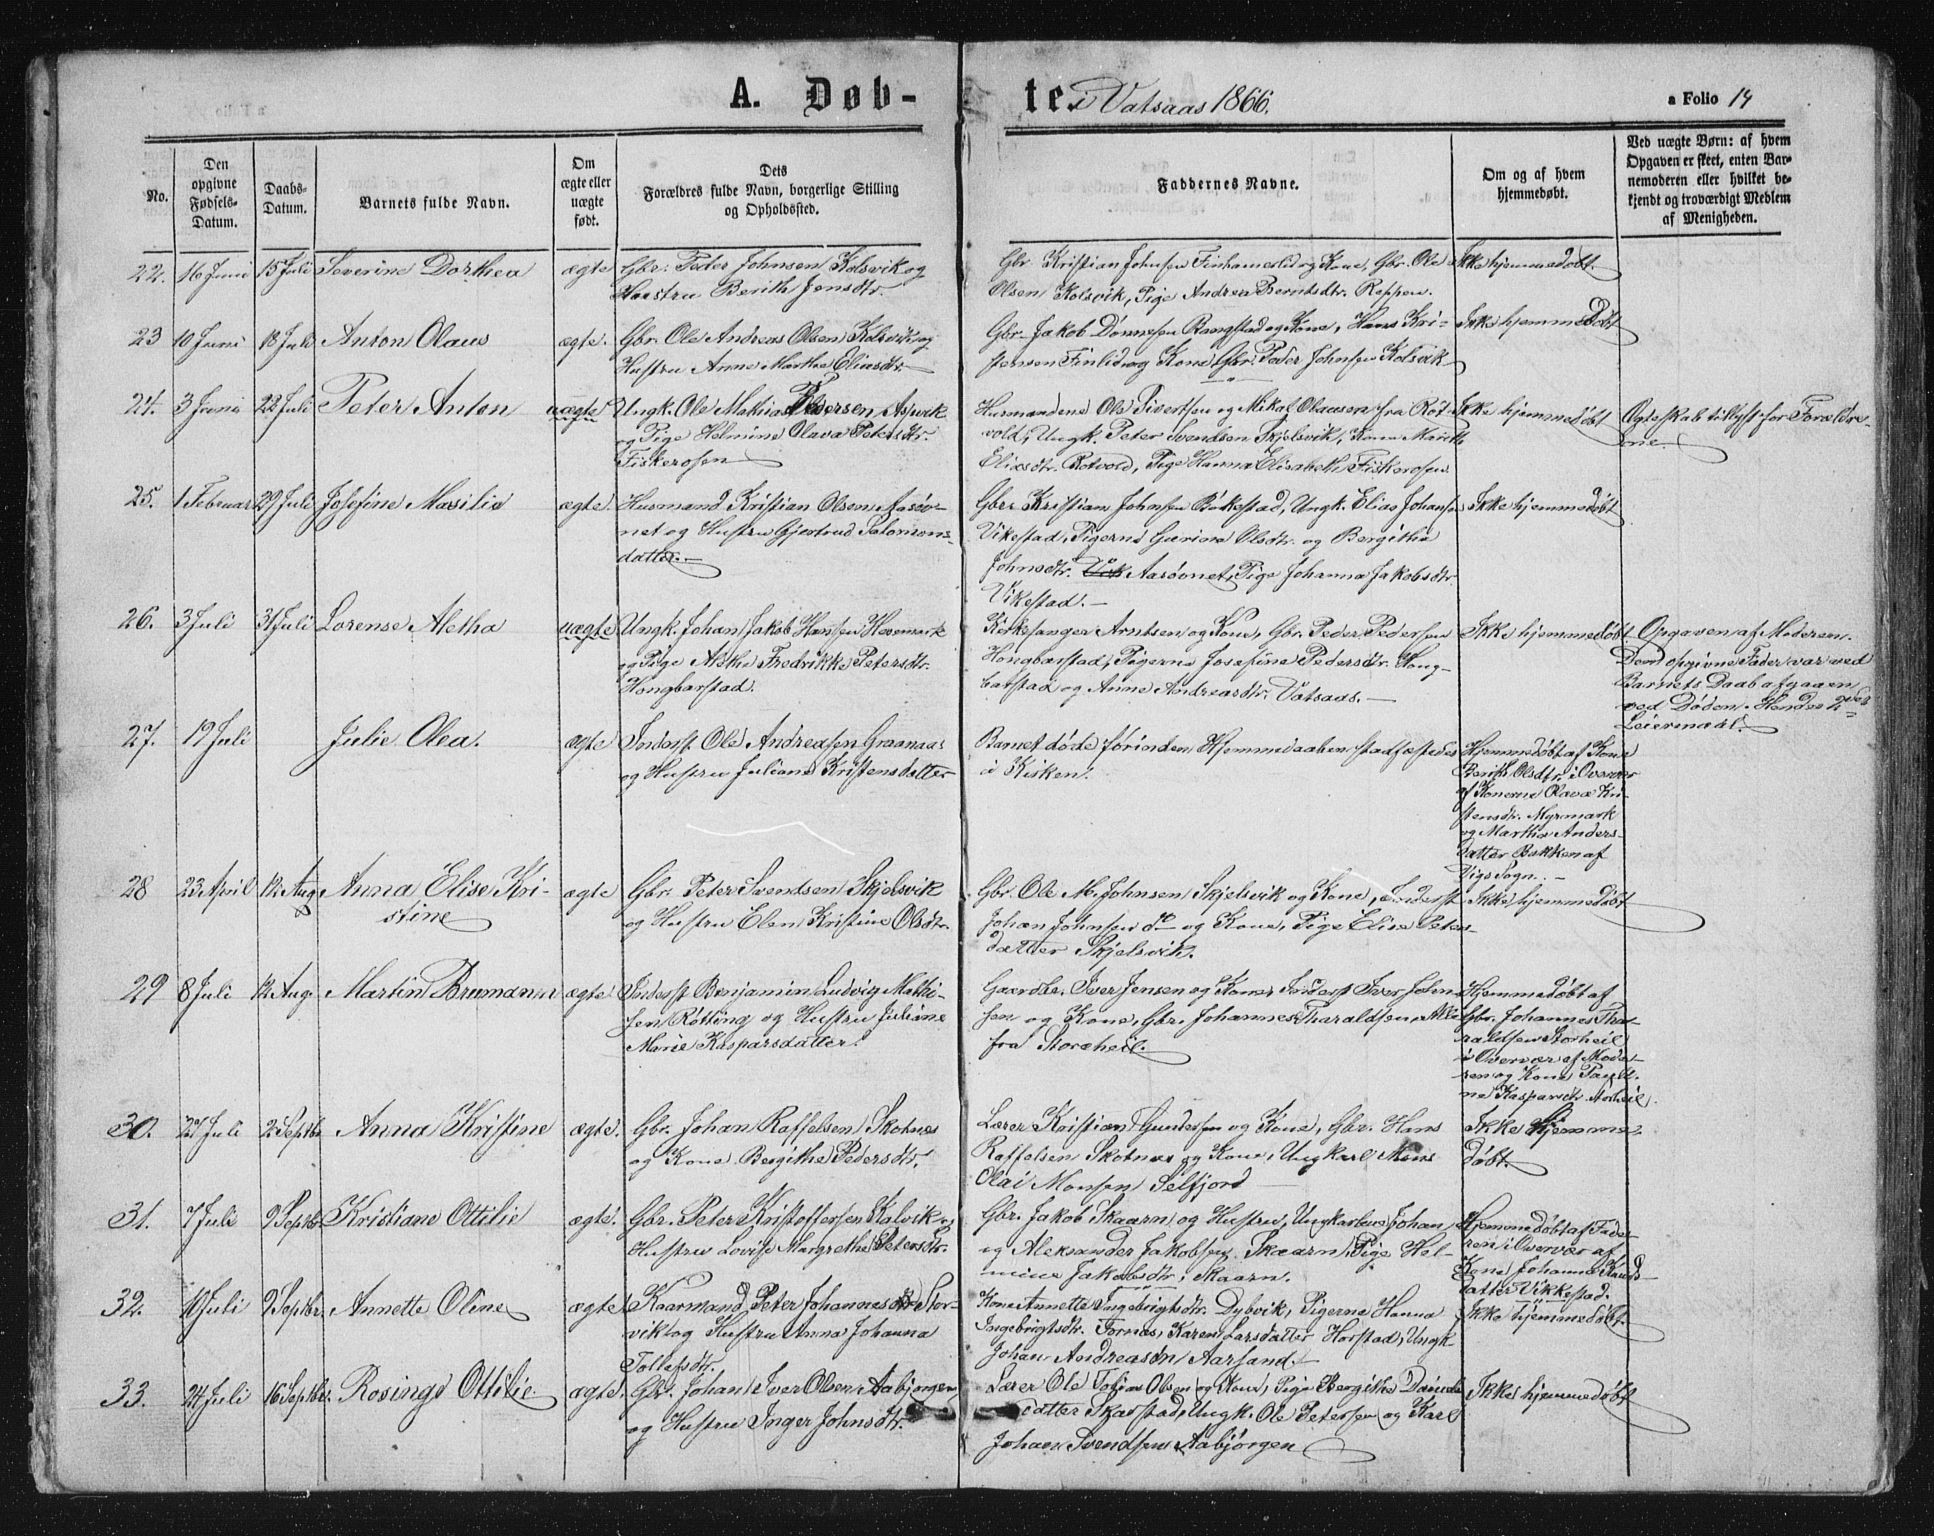 A. Døb-te. i Vatsaas 1866.
a Folio 14
No.
Den opgivne Fødsels-Datum.
Daabs-Datum.
Barnets fulde Navn.
Om ægte eller uægte født.
Dets Forældres fulde Navn, borgerlige Stilling og Opholdssted.
Faddernes Navne.
Om og af hvem hjemmedøbt.
Ved uægte Børn: af hvem Opgaven er skeet, enten Barnemoderen eller hvilket bekjendt og troværdigt Medlem af Menigheden.
22. 16 Juni 15 Juli Severine Dorthea ægte
Gbr. Peder Johnsen Kolsvik og
Hustru Berith Jensdtr.
Gbr. Kristian Johnsen Finhamerlid og Kone, Gbr. Ole
Olsen Kolsvik, Pige Andrea Berntsdtr. Reppen.
Ikke hjemmedøbt.
23 10 Juni 18 Juli Anton Olaus ægte.
Gbr. Ole Andreas Olsen Kolsvik og
Hustru Anne Marthe Eliasdtr.
Gbr. Jakob Dønnesen Rangstad og Kone, Hans Kri-
stensen Finlid og Kone, Gbr. Peder Johnsen Kolsvik
Ikke hjemmedøbt
24. 3 Juni 22 Juli Peter Anton uægte
Ungk. Ole Mathias Pedersen Aspvik
og Pige Helmine Olava Petersdtr.
Fiskerosen
Husmændene Ole Sivertsen og Mikal Olaussen fra Rot-
vold, Ungk. Peter Svendsen Skjelsvik, Kone Marith
Eliasdtr. Rotvold, Pige Hanna Elisabeth Fiskerosen
Ikke hjemmedøbt
Ægteskab tillyst for Forældre-
ne.
25. 1 Februar 29 Juli Josefine Masilie ægte.
Husmand Kristian Olsen Aasøv-
net og Hustru Gjertrud Salomons-
datter.
Gber Kristian Johnsen Birkestad, Ungk. Elias Johansen
Vikestad, Pigerne Gurine Olsdtr. og Bergithe
Johnsdtr. Aasøvnet, Pige Johanna Jakobsdtr
Vikestad.
Ikke hjemmedøbt
26. 3 Juli 31 Juli Lorense Aletha uægte
Ungk. Johan Jakob Hansen Horsmark
og Pige Aletha Fredrikke Petersdtr.
Hongbarstad.
Kirkesanger Arntsen og Kone, Gbr. Peder Pedersen
Hongbarstad, Pigerne Josefine Pedersdtr. Hong-
barstad og Anne Andreasdtr. Vatsaas.
Ikke hjemmedøbt.
Opgaven af Moderen.
Den opgivne Fader var ved
Barnets Daab afgaaen
ved Døden. Hendes 2det
Leiermaal.
27. 19 Juli Julie Olea. ægte
Inderst Ole Andreasen Graanaas
og Hustru Juliane Kristensdatter
Barnet døde førinden Hjemmedaaben stadfæstedes
i Kirken.
Hjemmedøbt af Kone
Berith Olsdtr. i Overvær
af Konerne Olava Kri-
stensdtr. Myrmark
og Martha Anders-
datter Bakken af
Vigs Sogn.
28 23 April 12 Aug Anna Elise Kri-
stine ægte
Gbr. Peter Svendsen Skjelsvik
og Hustru Elen Kristine Olsdtr.
Gbr. Ole M. Johnsen Skjelsvik og Kone, Inderst
Johan Johnsen do og Kone, Pige Elise Peters
datter Skjelsvik.
Ikke hjemmedøbt
29 8 Juli 12 Aug. Martin Brumann ægte
Inderst Benjamin Ludvig Mathi-
sen Røtting og Hustru Juliane
Marie Kaspersdatter.
Gaardbr. Iver Jensen og Kone, Inderst Iver John-
sen og Kone, Gbr. Johannes Tharaldsen, Alle
fra Storeheil.
Hjemmedøbt af
Gbr. Johannes Tha-
raldsen Storheil
i Overvær af Mode-
ren og Kone Pauli-
ne Kaspersdtr. Storheil.
30. 23 Juli 2 Septbr. Anna Kristine ægte.
Gbr. Johan Raffelsen Skotnes
og Kone Bergithe Pedersdtr.
Lærer Kristian Gundersen og Kone, Gbr. Hans
Raffelsen Skotnes og Kone, Ungkarl Mons
Olai Monsen Selfjord
Ikke hjemme-
døbt.
31. 7 Juli 9 Septbr Kristiane Ottilie ægte.
Gbr. Peter Kristoffersen Kalvik og
Hustru Lovise Margrethe Petersdtr.
Gbr. Jakob Skaarn og Hustru, Ungkarlene Johan
og Aleksander Jakobsen Skaarn, Pige Hel-
mine Jakobsdtr. Skaarn.
Hjemmedøbt af Fade-
ren i Overvær af
Kone Johanna Knuds-
datter Vikkestad.
32. 10 Juli 9 Septbr. Annette Oline ægte
Kaarmand Peter Johannesen Stor-
vik og Hustru Anna Johanna
Tollefsdtr.
Kone Annette Ingebrigtsdtr. Dybvik, Pigerne Hanna
Ingebrigtsdtr. Fornes, Karen Larsdatter Horstad, Ungk.
Johan Andreassen Aarsand.
Ikke hjemmedøbt.
33. 24 Juli 16 Septbr. Rosinge Ottilie ægte.
Gbr. Johan Iver Olsen Aabjørgen
og Hustru Inger Johnsdtr.
Lærer Ole Tobias Olsen og Kone, Pige Bergithe Daniels
datter Skarstad, Ungk. Ole Petersen og Karl
Johan Svendsen Aabjørgen
Ikke hjemmedøbt